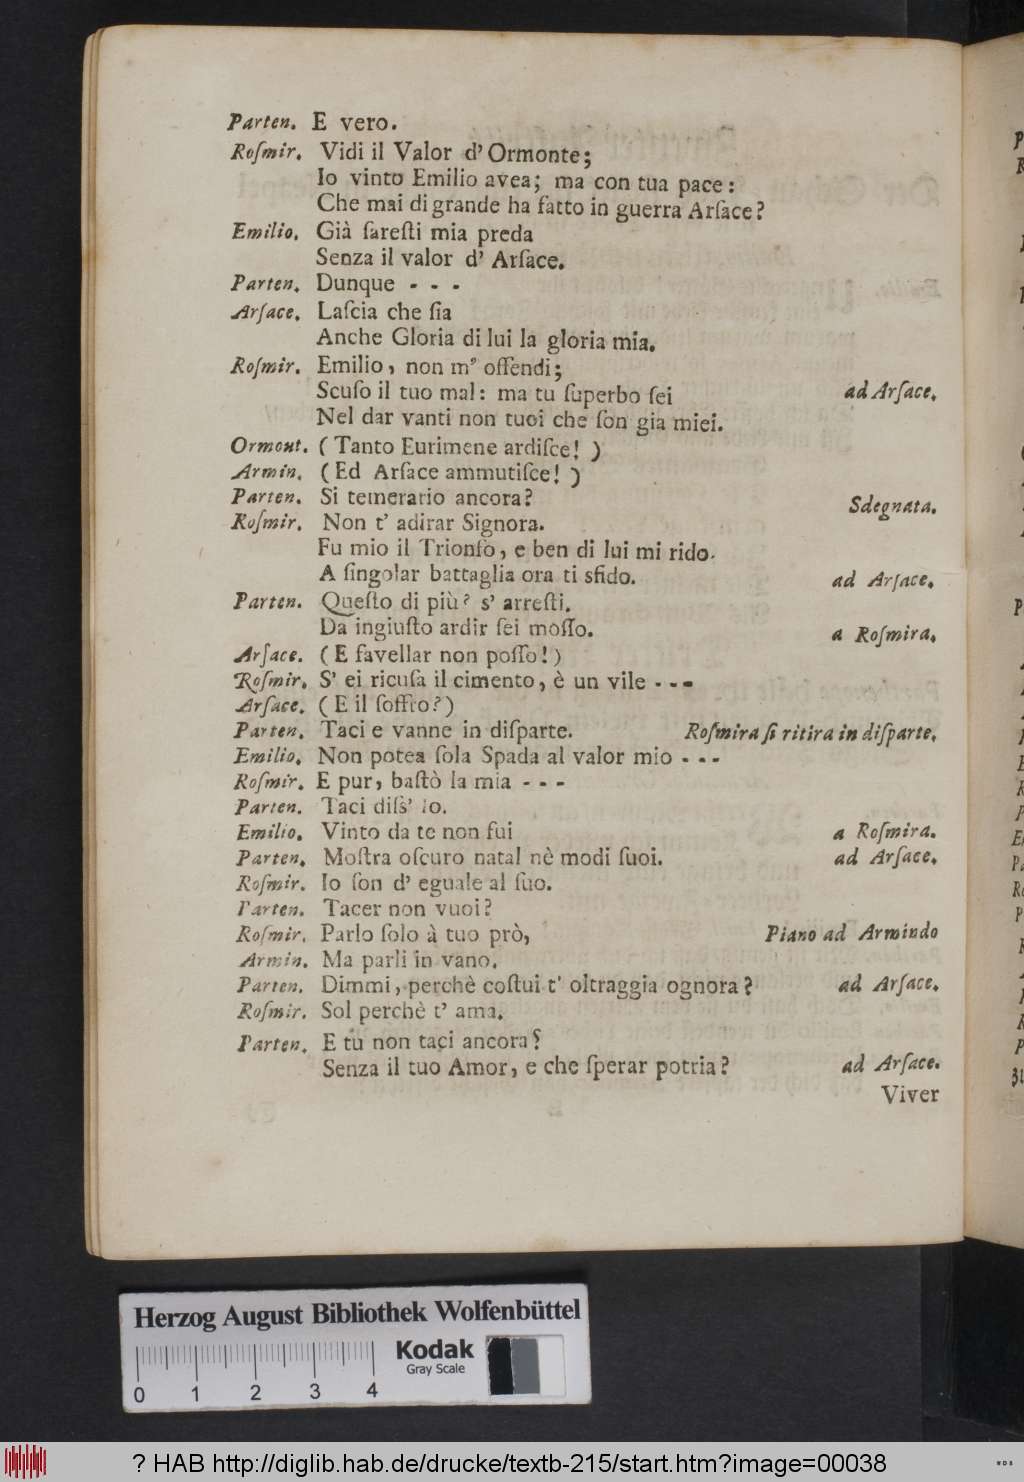 Parten. E vero.
Roſmir. Vidi il Valor d' Ormonte;
Io vinto Emilio avea; ma con tua pace:
Che mai di grande ha fatto in guerra Arſace?
Emilio. Già fareſti mia preda
Senza il valor d' Arſace.
Parten. Dunque - - -
Arſace. Laſcia che ſia
Anche Gloria di lui la gloria mia.
Roſmir. Emilio, non m' offendi;
Scuſo il tuo mal: ma tu ſuperbo ſei ad Arſace.
Nel dar vanti non tuoi che ſon gia miei.
Ormont. ( Tanto Eurimene ardiſce! )
Armin. ( Ed Arſace ammutiſce! )
Parten. Si temerario ancora? Sdegnata.
Roſmir. Non t' adirar Signora.
Fu mio il Trionfo, e ben di lui mi rido.
A ſingolar battaglia ora ti sfido. ad Arſace.
Parten. Queſto di più? s' arreſti.
Da ingiuſto ardir ſei moſſo. a Roſmira.
Arſace. ( E favellar non poſſo! )
Roſmir. S' ei ricuſa il cimento, è un vile - - -
Arſace. ( E il ſoffro? )
Parten. Taci e vanne in diſparte. Roſmira ſi ritira in diſparte.
Emilio. Non potea ſola Spada al valor mio - - -
Roſmir. E pur, baſtò la mia - - -
Parten. Taci diſs' io.
Emilio. Vinto da te non fui a Roſmira.
Parten. Moſtra oſcuro natal nè modi ſuoi. ad Arſace.
Roſmir. Io ſon d' eguale al ſuo.
Parten. Tacer non vuoi?
Roſmir. Parlo ſolo à tuo prò, Piano ad Armindo
Armin. Ma parli in vano.
Parten. Dimmi, perchè coſtui t' oltraggia ognora? ad Arſace.
Roſmir. Sol perchè t' ama.
Parten. E tu non taci ancora?
Senza il tuo Amor, e che ſperar potria? ad Arſace.
Viver
Herzog August Bibliothek Wolfenbüttel
Kodak
Gray Scale
0 1 2 3 4
? HAB http://diglib.hab.de/drucke/textb-215/start.htm?image=00038